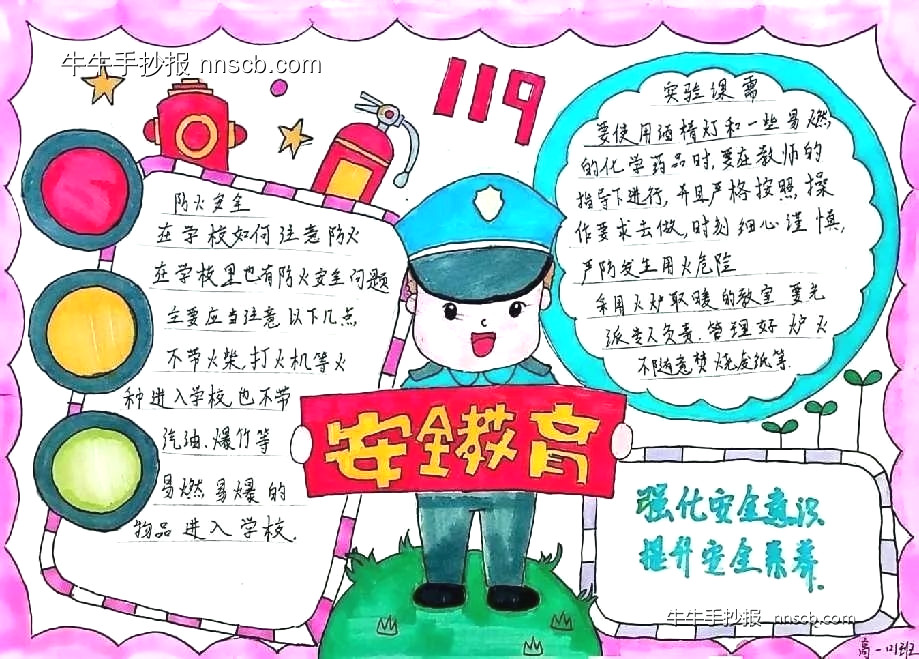 牛牛手抄报 nnscb.com
119
防火安全
在学校如何注意防火
在学校里也有防火安全问题
主要应当注意以下几点
不带火柴.打火机等火
种进入学校也不带
汽油.爆竹等
易燃易爆的
物品进入学校.
安全教育
实验课需
要使用酒精灯和一些易燃
的化学药品时,要在教师的
指导下进行,并且严格按照操
作要求去做,时刻细心谨慎,
严防发生用火危险
采用火炉取暖的教室要先
派专人负责.管理好炉火
不随意焚烧废纸等.
强化安全意识
提升安全素养.
牛牛手抄报 nnscb.com